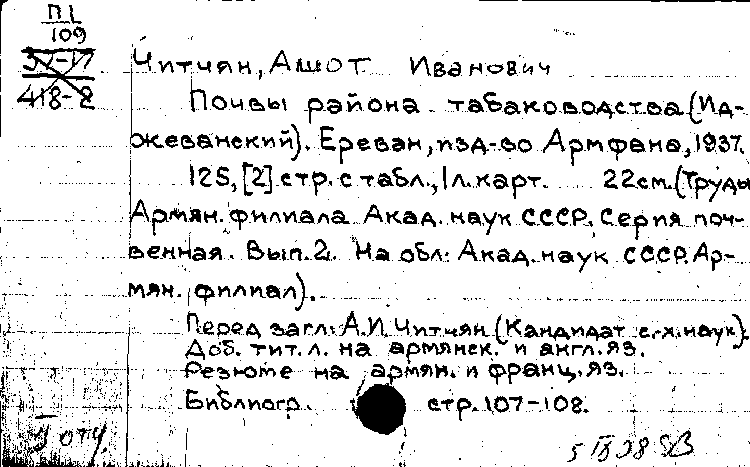 П1
109
37-17
418-2
Читчян, Ашот Иванович
Почвы района табаководства (Ид-
жеванский). Ереван, изд-во Армфана, 1937.
125, [2] стр. с табл., 1 л. карт. 22см. (Труды
Армян. филиала Акад. наук СССР. Серия поч-
венная. Вып. 2. На обл: Акад. наук СССР. Ар-
мян. филиал).
Перед загл: А.И. Читчян (Кандидат с.-х. наук).
Доб. тит. л. на армянск. и англ. яз.
Резюме на армян. и франц. яз.
Библиогр. стр. 107-108.